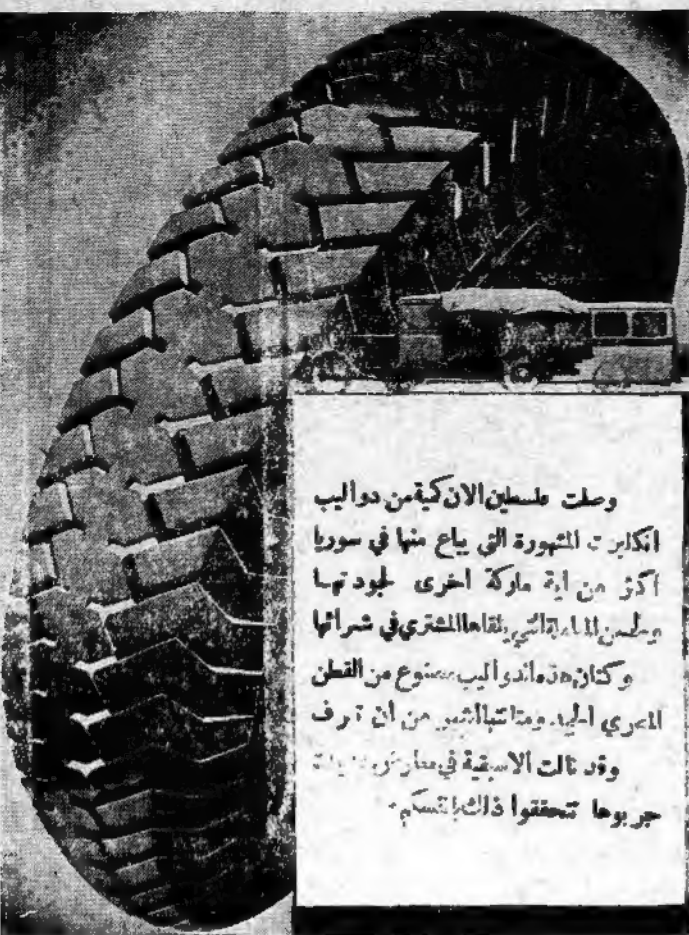 وصلت فلسطين الان كمية من دواليب
انكلبرت المشهورة التي يباع منها في سوريا
اكثر من اية ماركة اخرى لجودتها
وحسن المعاملة التي يلقاها المشتري في شرائها
وكتان هذه الدواليب مصنوع من القطن
المصري الجيد ومتانتها اشهر من ان تعرف
وقد نالت الاسبقية في معارض
جربوها تتحققوا ذلك بانفسكم